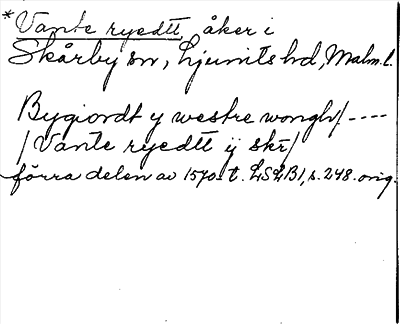 *Vante ryedtt, åker i
Skårby sn, Ljunits hd, Malm.l.
Bygiordt y westre wongh/ ----
/Vante ryedtt ÿ skr/
förra delen av 1570-t. LSLB1, s. 248. orig.